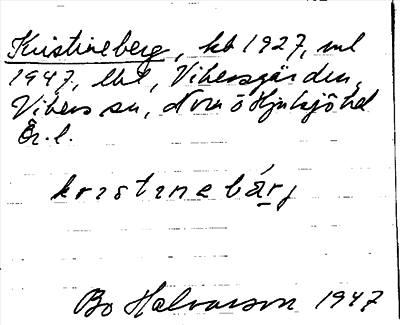 Kristineberg, kb 1927, ml
1947, lht, Vikersgården,
Vikers sn, Nora o Hjulsjö hd
Ör. l.
kristinebärj
Bo Halvarson 1947